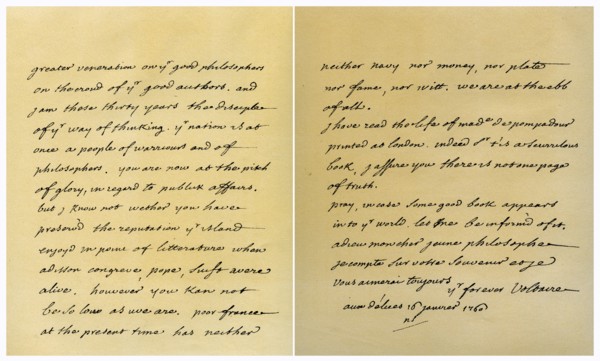 greater veneration on yr good philosophers
on the croud of yr good authors. and
j am these thirty years the disciple
of yr way of thinking. yr nation is at
once a people of warriours and off
philosophers. you are now at the pitch
of glory, in regard to publick affairs.
but j know not wether you have
preserv'd the reputation yr island
enjoy'd in point of litterature when
adisson congreve, pope, suift were
alive. however you kan not
be so low as we are. poor france
at the present time has neither
neither navy nor money, nor plate
nor fame, nor witt. we are at the ebb
of all.
j have read the life of made de pompadour
printed at london. indeed sr t'is a scurrilous
book, j assure you there is not one page
of truth.
pray, in case some good book appears
in to yr world. let me be inform'd of it.
adieu mon cher jeune philosophe
je compte sur votre souvenir et je
vous aimerai toujours
yr forever Voltaire
aux délices 16 janvier 1760